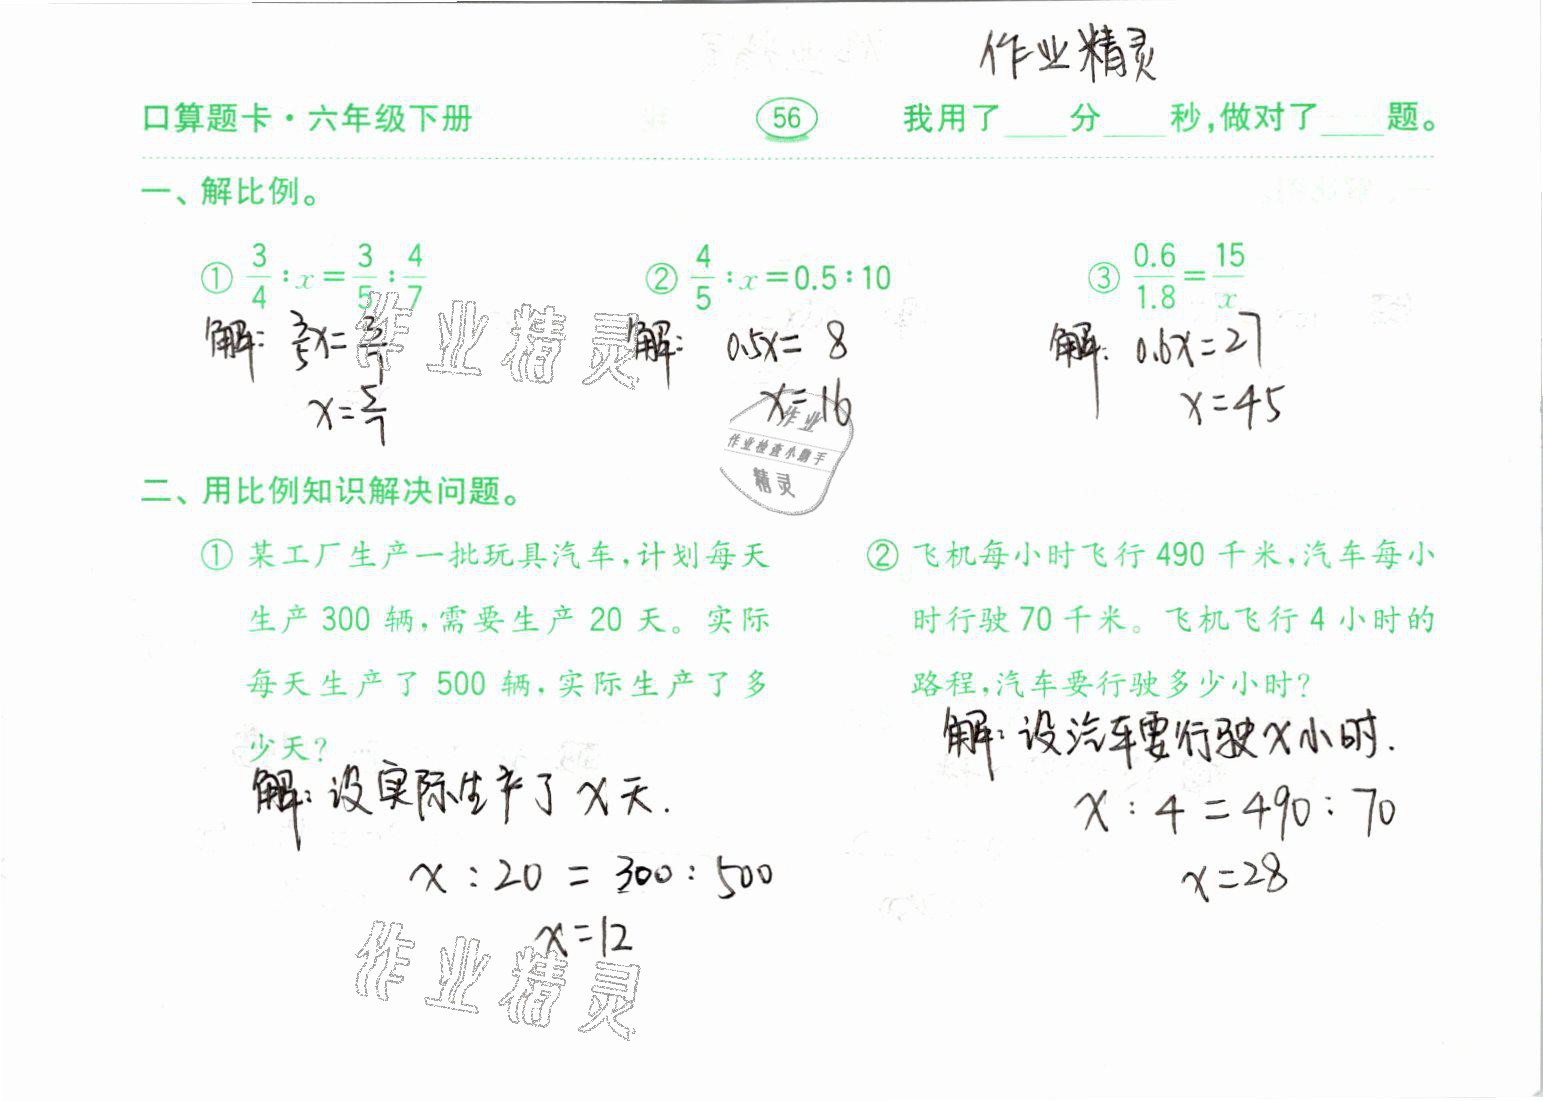 作业精灵
口算题卡·六年级下册 56 我用了____分____秒,做对了____题。
一、解比例。
① 3/4 : x = 3/5 : 4/7 ② 4/5 : x = 0.5 : 10 ③ 0.6/1.8 = 15/x
解: 3/5x = 3/7 解: 0.5x = 8 解: 0.6x = 27
x = 5/7 x = 16 x = 45
作业精灵
作业
作业检查小帮手
精灵
二、用比例知识解决问题。
① 某工厂生产一批玩具汽车,计划每天
生产 300 辆,需要生产 20 天。实际
每天生产了 500 辆,实际生产了多
少天?
解: 设实际生产了 x 天.
x : 20 = 300 : 500
x = 12
作业精灵
② 飞机每小时飞行 490 千米,汽车每小
时行驶 70 千米。飞机飞行 4 小时的
路程,汽车要行驶多少小时?
解: 设汽车要行驶 x 小时.
x : 4 = 490 : 70
x = 28